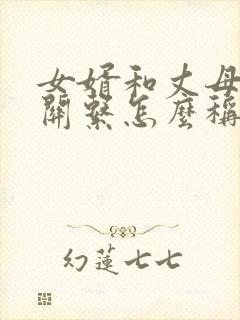 女婿和丈母
關繫怎麼稱
幻蓮七七